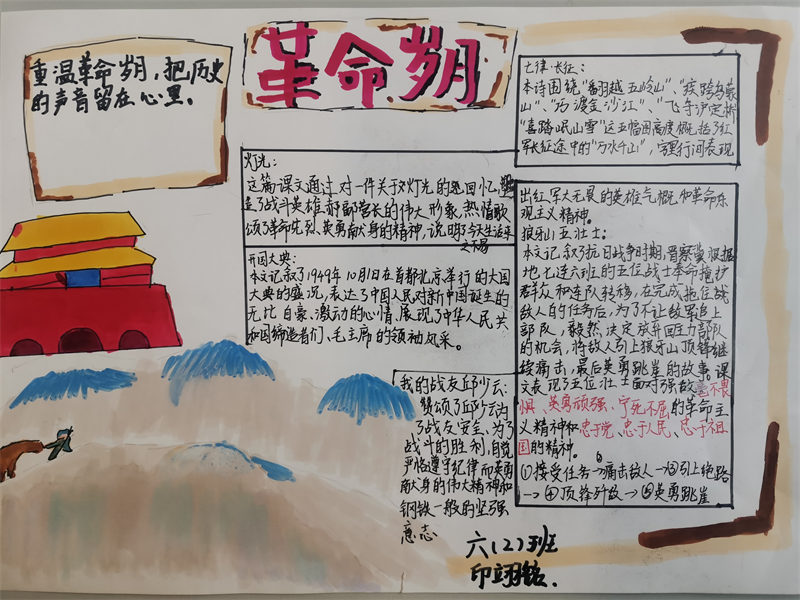 革命岁月
重温革命岁月，把历史
的声音留在心里。
灯光：
这篇课文通过对一件关于灯光的
了战斗英雄郝副营长的伟大形象，热情歌
颂了革命先烈英勇献身的精神，说明了今天生活来
之不易
开国大典：
本文记叙了1949年10月1日在首都北京举行的大国
大典的盛况，表达了中国人民对新中国诞生的
无比自豪、激动的心情，展现了中华人民共
和国缔造者们、毛主席的领袖风采。
我的战友邱少云：
赞颂了邱少云为
了战友安全，为了
战斗的胜利，自觉
严格遵守纪律而英勇
献身的伟大精神和
钢铁一般的坚强
意志
七律·长征：
本诗围绕“翻越五岭山”、“疾跨乌蒙
山”、“巧渡金沙江”、“飞夺泸定桥”
“喜踏岷山雪”这五幅图高度概括了红
军长征途中的“万水千山”，字里行间表现
出红军大无畏的英雄气概和革命乐
观主义精神。
狼牙山五壮士：
本文记叙了抗日战争时期，晋察冀根据
地七连六班的五位战士奉命掩护
群众和连队转移，在完成拖住敌
敌人的任务后，为了不让敌军追上
部队，毅然决定放弃回主力部队
的机会，将敌人引上狼牙山顶峰继
续痛击，最后英勇跳崖的故事。课
文表现了五位壮士面对强敌毫不畏
惧、英勇顽强、宁死不屈的革命主
义精神和忠于党、忠于人民、忠于祖
国的精神。
①接受任务→痛击敌人→③引上绝路
→④顶峰歼敌→⑤英勇跳崖
六（2）班
印翊铭.